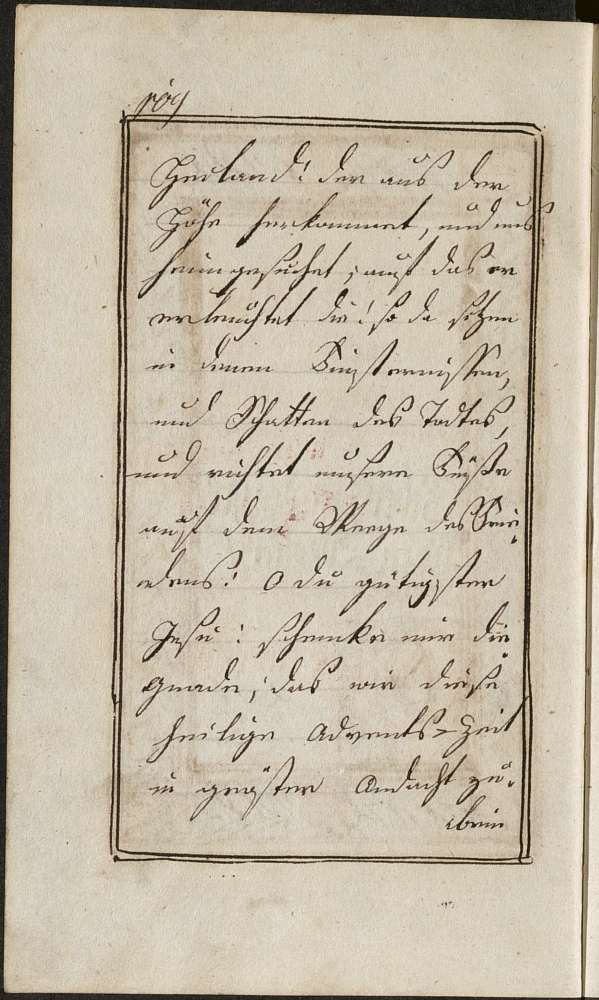 109
Heÿland! der aus der
Höhe herkommet, und uns
heimgesuchet; auf das er
erleuchtet die! so da sitzen
in denen Finsternissen,
und Schatten des Todtes,
und richtet unsere Füsße
auf dem Weege des Frie„
„dens: O du gütigster
Jesu: schencke mir die
Gnade; das wir diese
heilige Advents-Zeit
in großter Andacht zu„
„brin